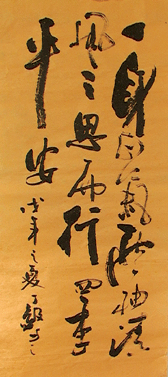 一身正氣兩袖清
風三思而行四季
平安
戊年之夏